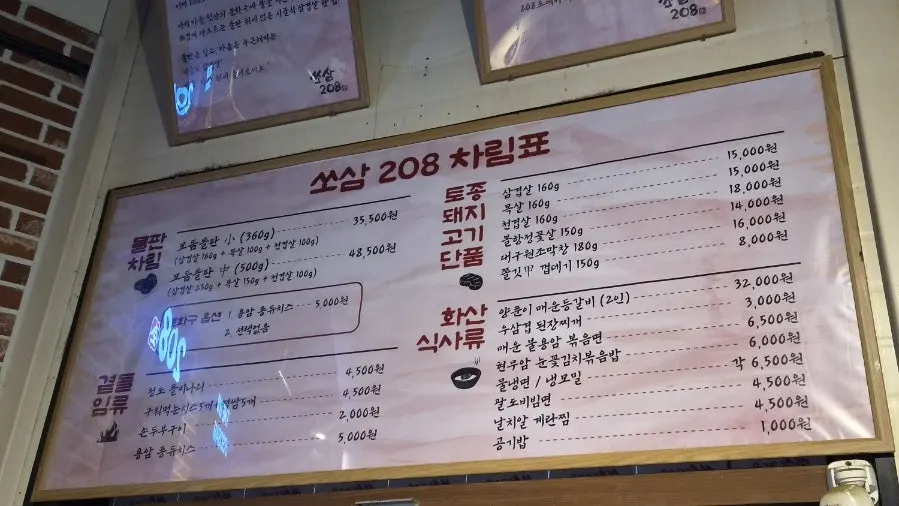 쏘삼
208
208
쏘삼 208 차림표
돌판
차림
모둠돌판 小 (360g) 35,500원
(삼겹살 160g + 목살 100g + 천겹살 100g)
모둠돌판 中 (500g) 48,500원
(삼겹살 250g + 목살 150g + 천겹살 100g)
분화구 옵션 1. 용암 퐁듀치즈 5,000원
2. 선택없음
곁들
임류
청도 돌미나리 4,500원
구워먹는치즈5개 4,500원
손두부구이 2,000원
용암 퐁듀치즈 5,000원
토종
돼지
고기
단품
삼겹살 160g 15,000원
목살 160g 15,000원
천겹살 160g 18,000원
불항정꽃살 150g 14,000원
대구원조막창 180g 16,000원
쫄깃甲 껍데기 150g 8,000원
화산
식사류
양푼이 매운등갈비 (2인) 32,000원
우삼겹 된장찌개 3,000원
매운 불용암 볶음면 6,500원
현무암 눈꽃김치볶음밥 6,000원
물냉면 / 냉모밀 각 6,500원
팔도비빔면 4,500원
날치알 계란찜 4,500원
공기밥 1,000원